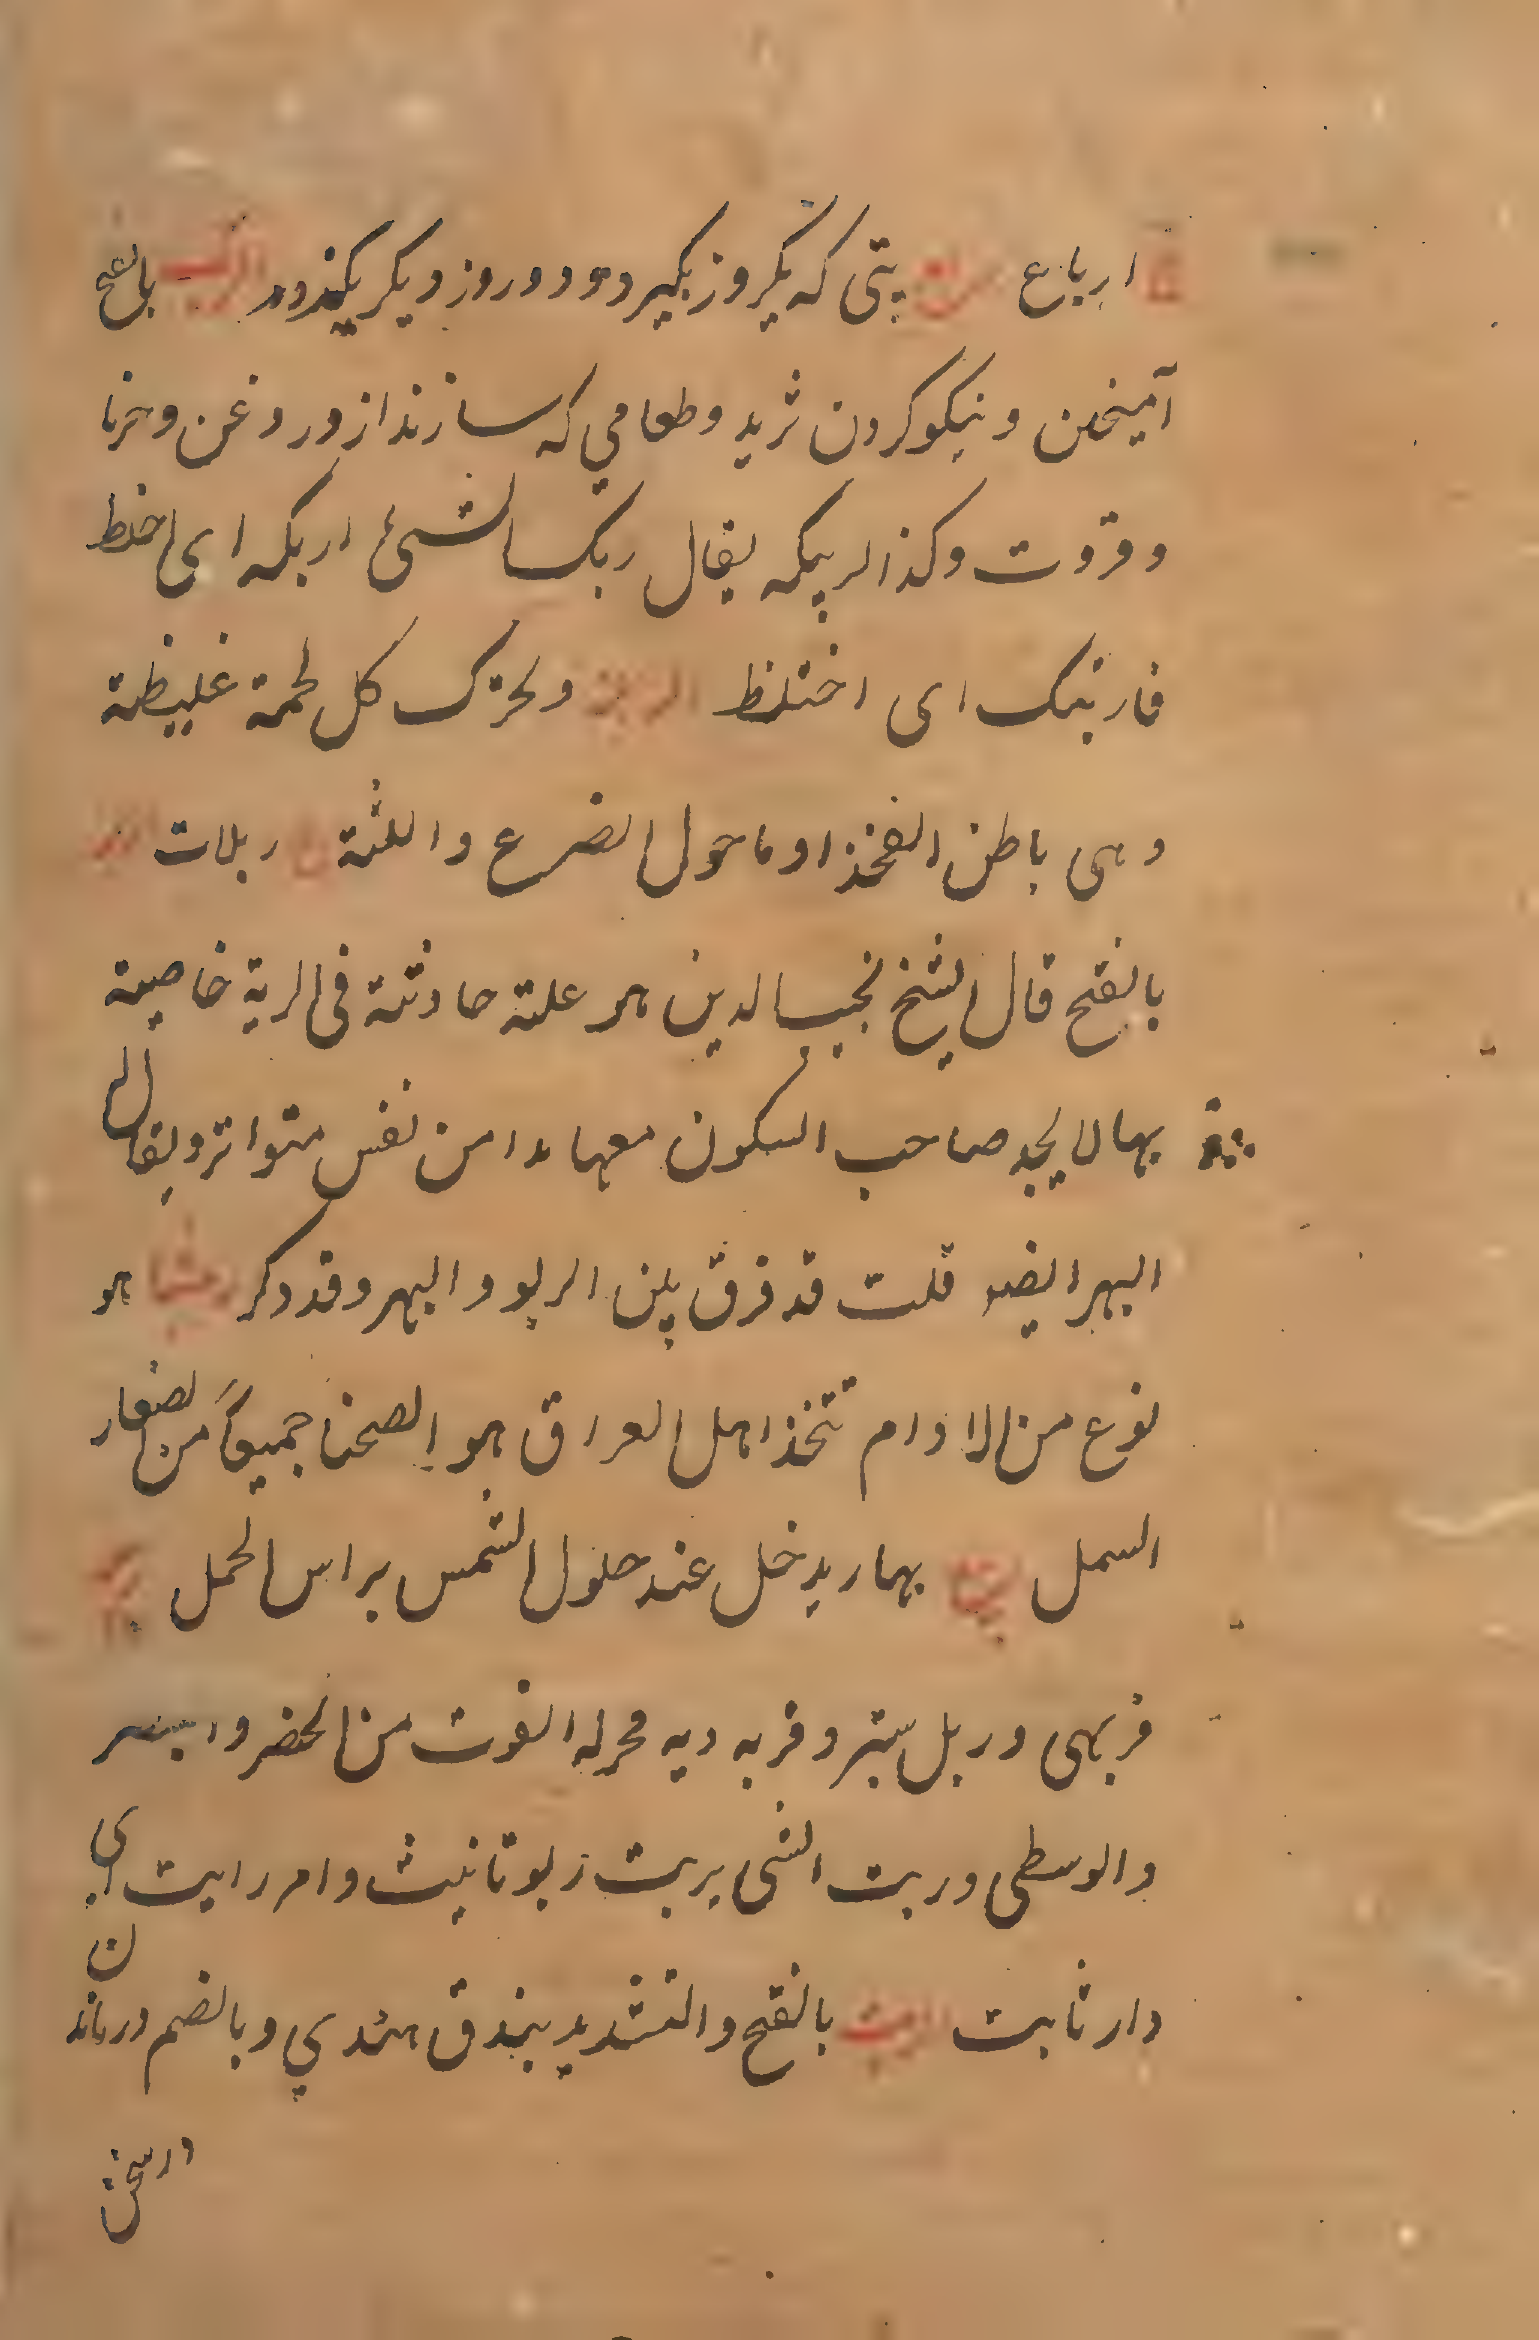 ج ارباع ربع تپی که یکروز بگیرد و دو روز دیگر بگذرد الربک بالفتح
آمیختن و نیکو کردن ثرید و طعامی که سازند از و روغن و خرما
و قروت و کذا الربیکه یقال ربک الشئ اربکه ای اخلط
فارتبک ای اختلط الربلة و یحرک کل لحمة غلیظة
و هی باطن الفخذ او ما حول الضرع و اللثة ج ربلات الربو
بالفتح قال الشیخ نجیب الدین هو علة حادثة فی الریة خاصیة
بها لا یجد صاحب السکون معها بدا من نفس متواتر و یقال لها
البهر ایضو قلت قد فرق بین الربو و البهر و قد ذکر هو
نوع من الادام تتخذ اهل العراق هو الصحنا جمیعاً من الصغار
السمک ربیع بهار یدخل عند حلول الشمس براس الحمل
فربهی و ربل ستبر و فربه دیه محرله الفوت من الخضر و البنصر
و الوسطی و ربت الشی یربت ربوتا نیث و امر رابت ای
دار ثابت بالفتح و التشدید بندق هندی و بالضم درماندن
در سخن